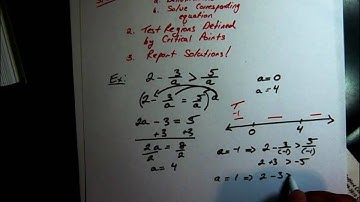 b. Solve Corresponding
equation
2. Test Regions Defined
by Critical Points
3. Report Solutions!
Ex: 2 - 3/a > 5/a
(2 - 3/a = 5/a)a
2a - 3 = 5
+3 +3
2a/2 = 8/2
a = 4
a = 0
a = 4
T
-1
0 4
a = -1 ⇒ 2 - 3/(-1) > 5/(-1)
2 + 3 > -5
a = 1 ⇒ 2 - 3 >